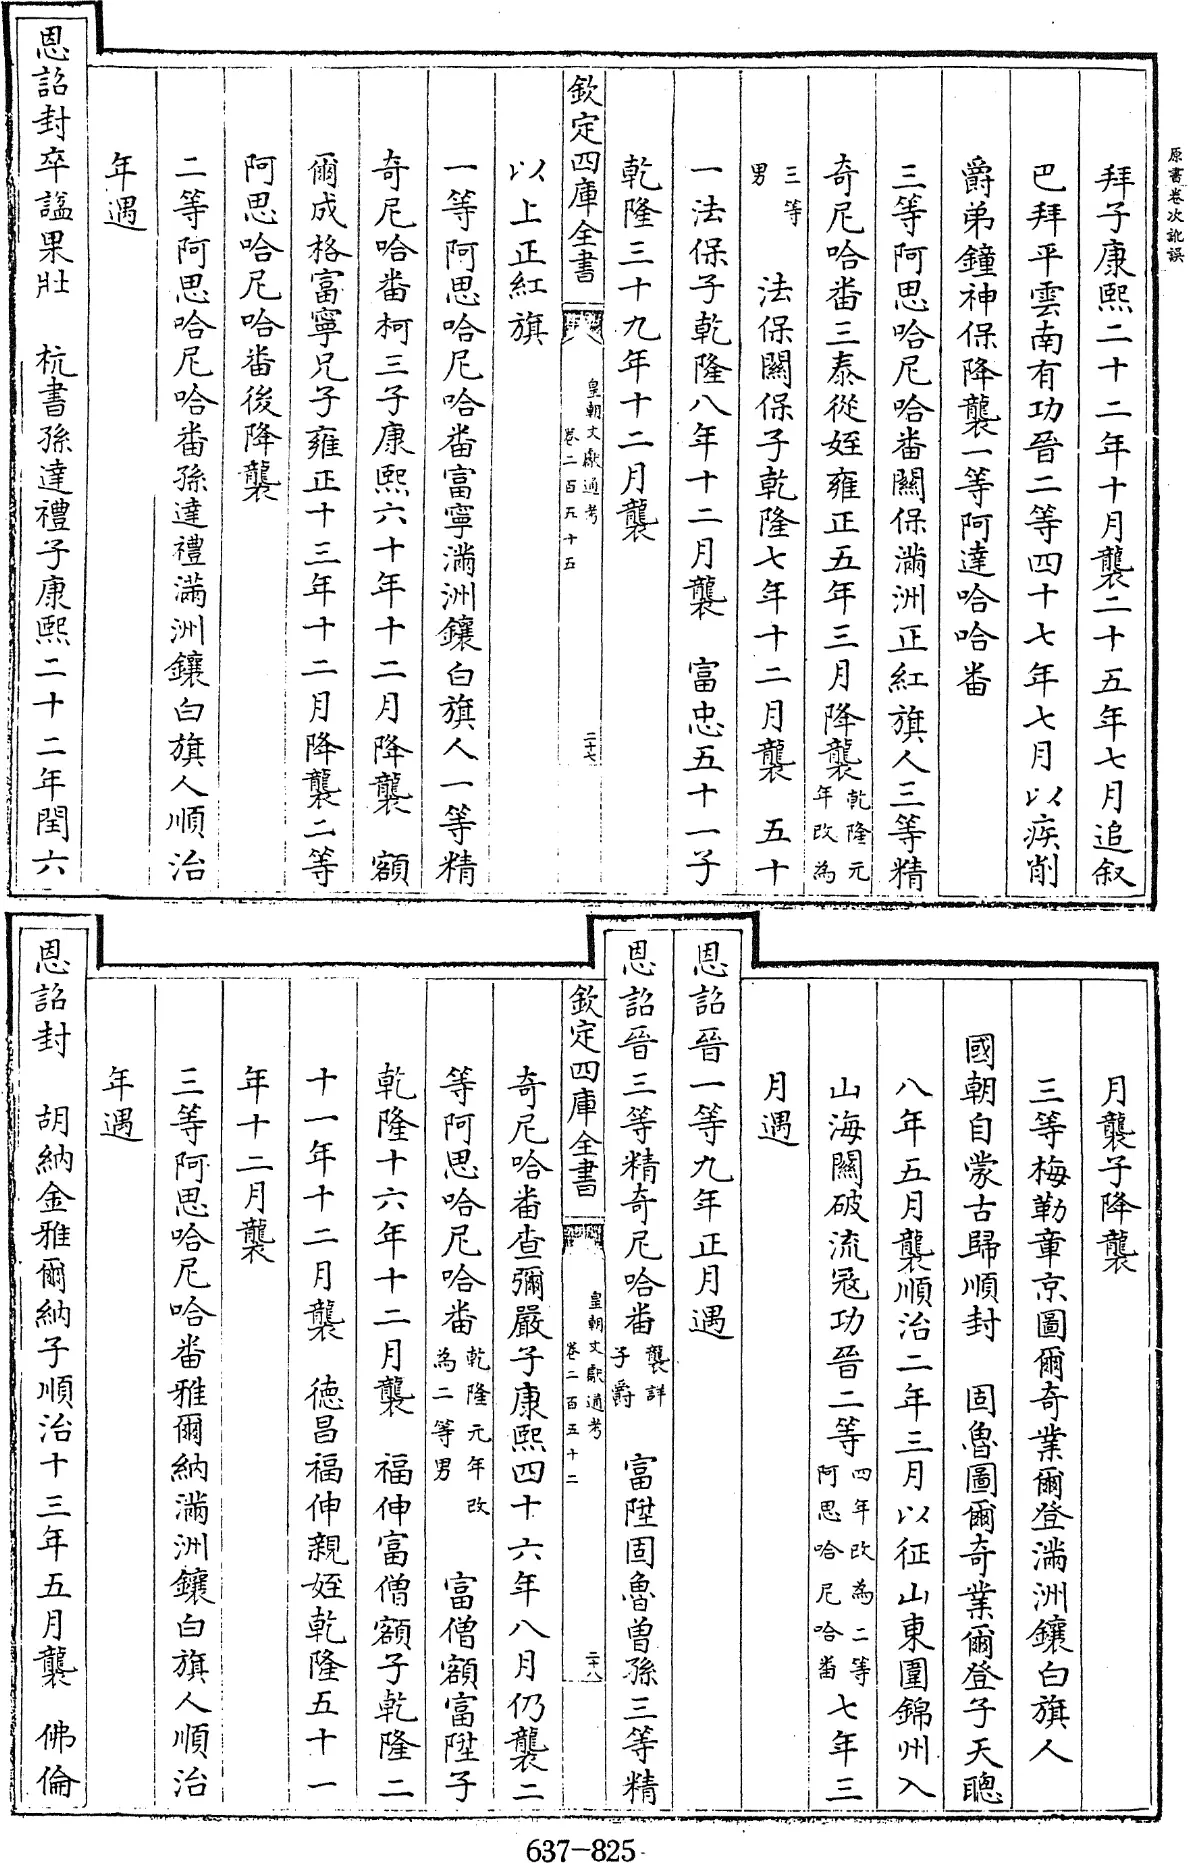 原書卷次訛誤
拜子康熙二十二年十月襲二十五年七月追叙
巴拜平雲南有功晉二等四十七年七月以疾削
爵弟鐘神保降襲一等阿達哈哈番
三等阿思哈尼哈番關保滿洲正紅旗人三等精
奇尼哈番三泰從姪雍正五年三月降襲乾隆元年改為
三等男 法保關保子乾隆七年十二月襲 五十
一法保子乾隆八年十二月襲 富忠五十一子
乾隆三十九年十二月襲
欽定四庫全書 皇朝文獻通考卷二百五十五 二十七
以上正紅旗
一等阿思哈尼哈番富寧滿洲鑲白旗人一等精
奇尼哈番柯三子康熙六十年十二月降襲 額
爾成格富寧兄子雍正十三年十二月降襲二等
阿思哈尼哈番後降襲
二等阿思哈尼哈番孫達禮滿洲鑲白旗人順治
年遇
恩詔封卒諡果壯 杭書孫達禮子康熙二十二年閏六
月襲子降襲
三等梅勒章京圖爾奇業爾登滿洲鑲白旗人
國朝自蒙古歸順封 固魯圖爾奇業爾登子天聰
八年五月襲順治二年三月以征山東圍錦州入
山海關破流寇功晉二等四年改為二等阿思哈尼哈番七年三
月遇
恩詔晉一等九年正月遇
恩詔晉三等精奇尼哈番襲詳子爵 富陞固魯曾孫三等精
欽定四庫全書 皇朝文獻通考卷二百五十二 二十八
奇尼哈番查彌嚴子康熙四十六年八月仍襲二
等阿思哈尼哈番乾隆元年改為二等男 富僧額富陞子
乾隆十六年十二月襲 福伸富僧額子乾隆二
十一年十二月襲 德昌福伸親姪乾隆五十一
年十二月襲
三等阿思哈尼哈番雅爾納滿洲鑲白旗人順治
年遇
恩詔封 胡納金雅爾納子順治十三年五月襲 佛倫
637-825